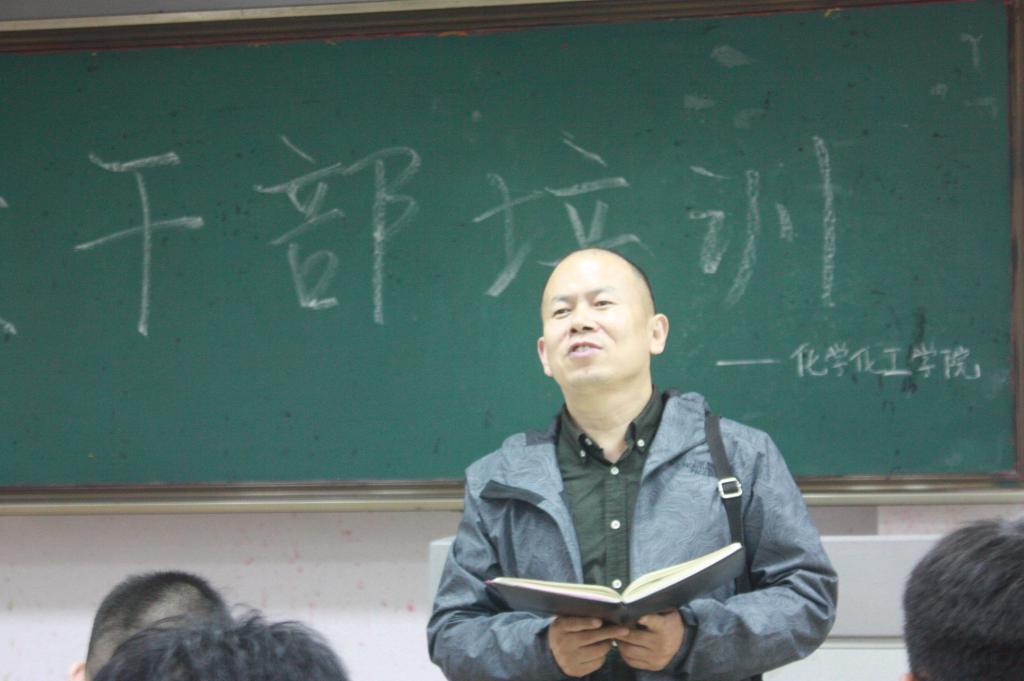 干部培训
——化学化工学院